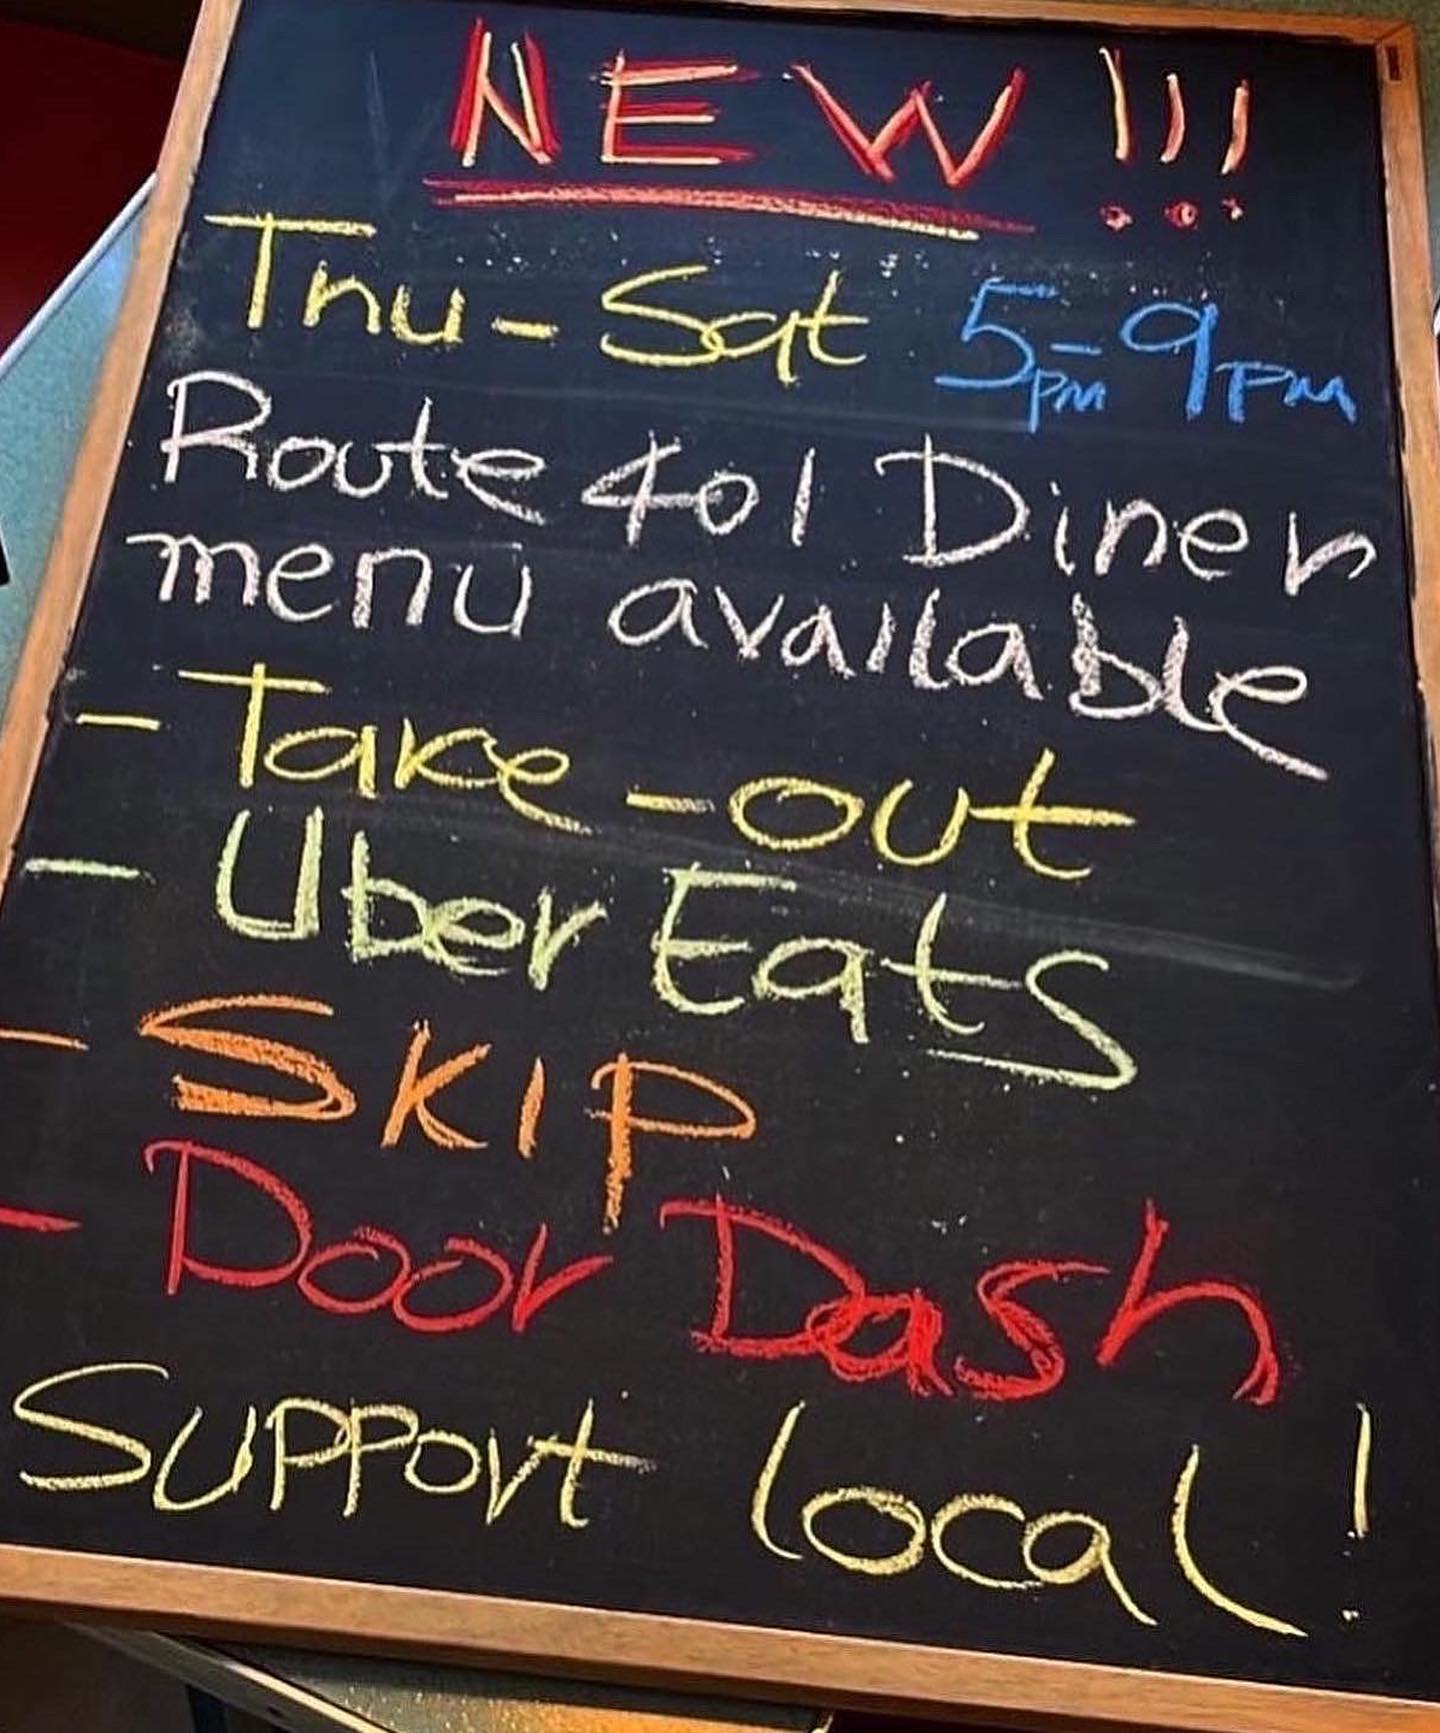 NEW!!!
Thu - Sat 5pm - 9pm
Route 401 Diner
menu available
- Take-out
- Uber Eats
- SKIP
- Door Dash
Support local!